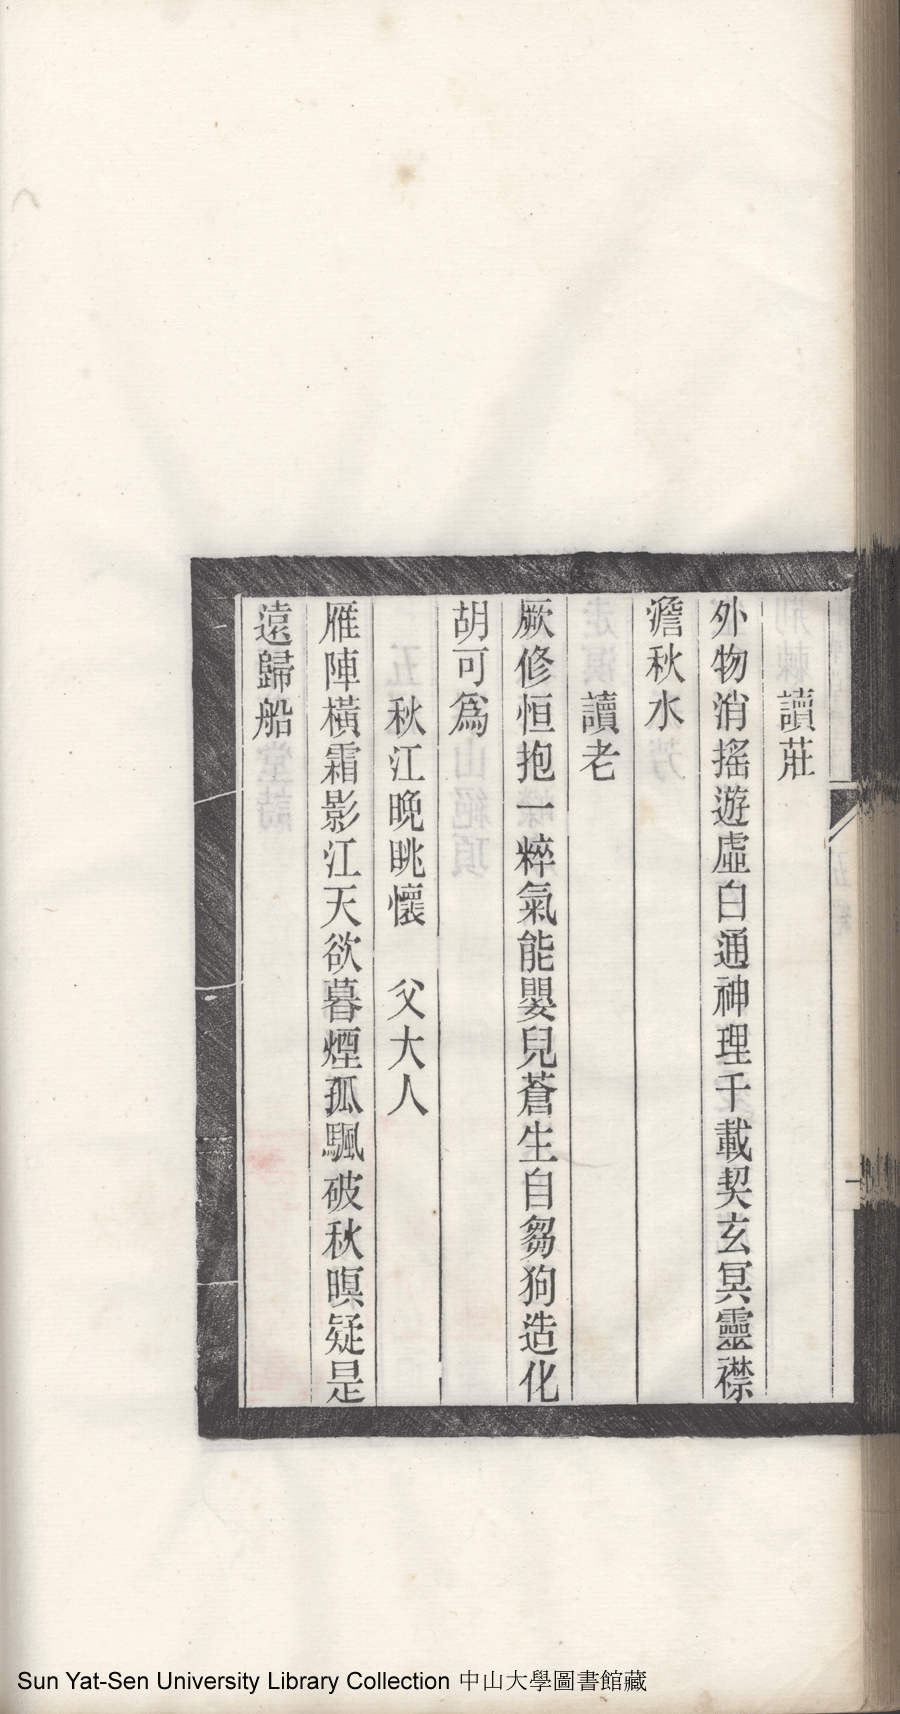 讀莊
外物消搖遊虛白通神理千載契玄冥靈襟
澹秋水
讀老
厥修恒抱一粹氣能嬰兒蒼生自芻狗造化
胡可爲
秋江晩眺懷　父大人
雁陣橫霜影江天欲暮煙孤颿破秋暝疑是
遠歸船
Sun Yat-Sen University Library Collection 中山大學圖書館藏